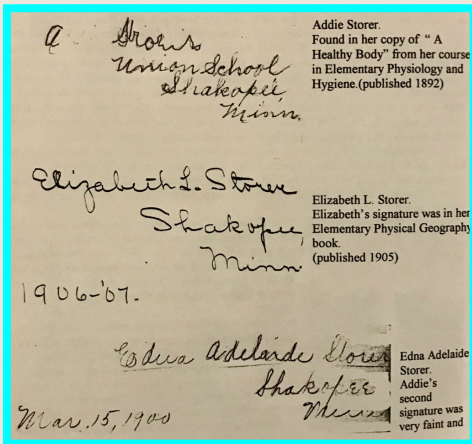 A Storer
Union School
Shakopee
Minn.
Addie Storer.
Found in her copy of " A
Healthy Body" from her course
in Elementary Physiology and
Hygiene.(published 1892)
Elizabeth L. Storer
Shakopee,
Minn.
1906-'07.
Elizabeth L. Storer.
Elizabeth's signature was in her
Elementary Physical Geography
book.
(published 1905)
Edna Adelaide Storer
Shakopee
Minn
Mar. 15, 1900
Edna Adelaide
Storer.
Addie's
second
signature was
very faint and